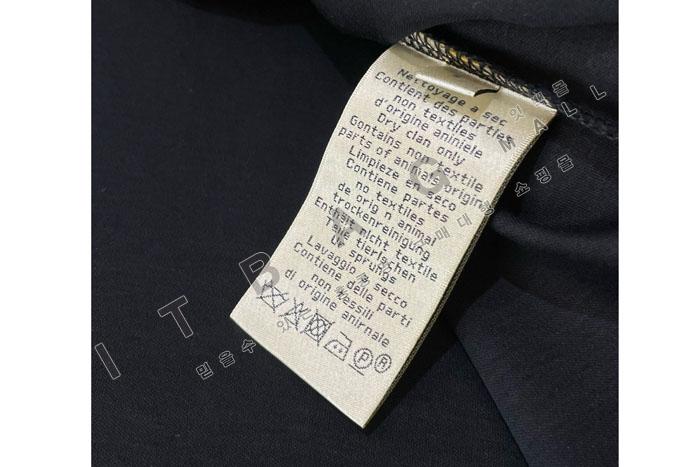 Nettoyage a sec
Contient des parties
non textiles
d'origine aniniele
Dry clan only
Gontains non textile
parts of animals origin
Limpieze en seco
Contiene partes
no textiles
de orig n animal
trockenreinigung
Enthalt nicht textile
Teile tierlschen
Ur sprungs
Lavaggio a secco
Contiene delle parti
non tessili
di origine anirnale
P R